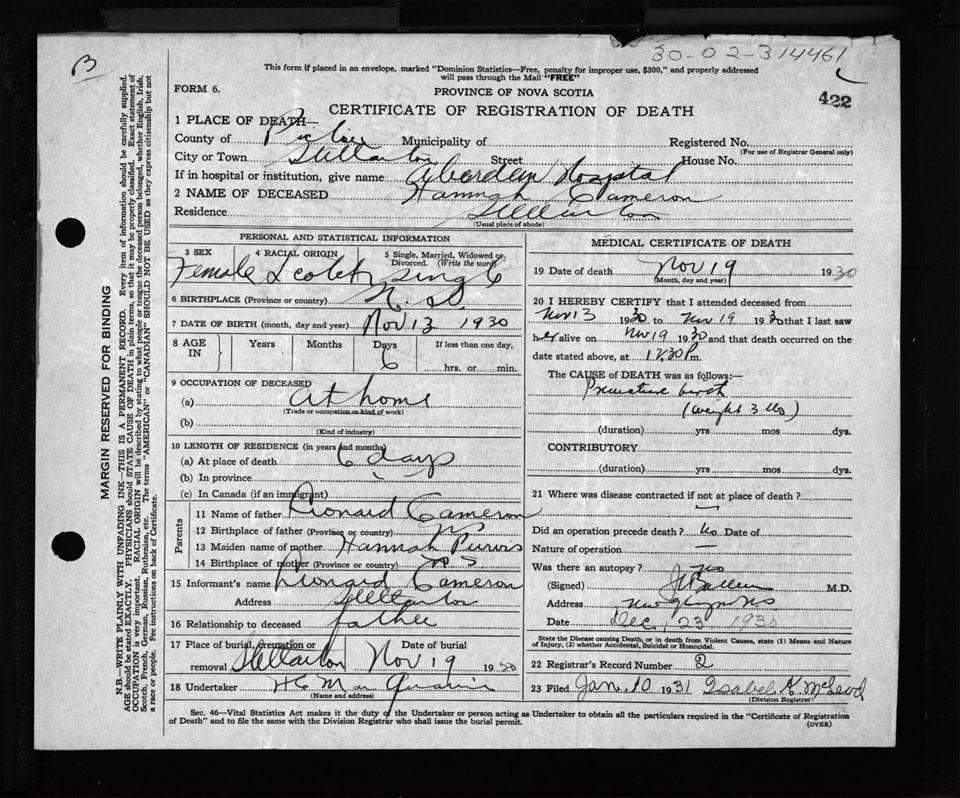 B
30-02-314461
This form if placed in an envelope, marked "Dominion Statistics—Free, penalty for improper use, $300," and properly addressed
will pass through the Mail "FREE"
FORM 6.
PROVINCE OF NOVA SCOTIA
422
CERTIFICATE OF REGISTRATION OF DEATH
1 PLACE OF DEATH—
County of Pictou Municipality of Registered No.
(For use of Registrar General only)
City or Town Stellarton Street House No.
If in hospital or institution, give name Aberdeen Hospital
2 NAME OF DECEASED Hannah Cameron
Residence Stellarton
(Usual place of abode)
PERSONAL AND STATISTICAL INFORMATION
3 SEX 4 RACIAL ORIGIN 5 Single, Married, Widowed or Divorced. (Write the word)
Female Scotch single
6 BIRTHPLACE (Province or country) N. S
7 DATE OF BIRTH (month, day and year) Nov 13 1930
8 AGE IN Years Months Days If less than one day,
6 hrs. or min.
9 OCCUPATION OF DECEASED
(a) at home
(Trade or occupation or kind of work)
(b)
(Kind of industry)
10 LENGTH OF RESIDENCE (in years and months)
(a) At place of death 6 days
(b) In province
(c) In Canada (if an immigrant)
Parents
11 Name of father Cameron
12 Birthplace of father (Province or country) NS
13 Maiden name of mother Hannah Purvis
14 Birthplace of mother (Province or country) NS
15 Informant's name Cameron
Address Stellarton
16 Relationship to deceased father
17 Place of burial, cremation or Date of burial
removal Stellarton Nov 19 1930
18 Undertaker
(Name and address)
MEDICAL CERTIFICATE OF DEATH
19 Date of death Nov 19 1930
(Month, day and year)
20 I HEREBY CERTIFY that I attended deceased from
Nov 13 1930 to Nov 19 1930 that I last saw
her alive on Nov 19 1930 and that death occurred on the
date stated above, at 12.30 P.m.
The CAUSE of DEATH was as follows:—
Premature birth
(weight 3 lbs)
(duration) yrs mos dys.
CONTRIBUTORY
(duration) yrs mos dys.
21 Where was disease contracted if not at place of death?
—
Did an operation precede death? No Date of
Nature of operation —
Was there an autopsy? No
(Signed) M.D.
Address New Glasgow NS
Date Dec. 23 1930
State the Disease causing Death, or in death from Violent Causes, state (1) Means and Nature
of Injury, (2) whether Accidental, Suicidal or Homicidal.
22 Registrar's Record Number 2
23 Filed Jan. 10 1931 Isabel K. McLeod
(Division Registrar)
Sec. 46—Vital Statistics Act makes it the duty of the Undertaker or person acting as Undertaker to obtain all the particulars required in the "Certificate of Registration
of Death" and to file the same with the Division Registrar who shall issue the burial permit.
(OVER)
MARGIN RESERVED FOR BINDING
N.B.—WRITE PLAINLY WITH UNFADING INK—THIS IS A PERMANENT RECORD. Every item of information should be carefully supplied.
AGE should be stated EXACTLY. PHYSICIANS should STATE CAUSE OF DEATH in plain terms, so that it may be properly classified. Exact statement of
OCCUPATION is very important. RACIAL ORIGIN will be described by stating to what people or tongue the deceased person belonged, whether English, Irish,
Scotch, French, German, Russian, Ruthenian, etc. The terms "AMERICAN" or "CANADIAN" SHOULD NOT BE USED as they express citizenship but not
a race or people. See instructions on back of Certificate.